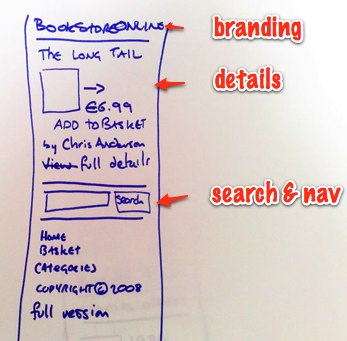 BOOKSTOREONLINE
branding
THE LONG TAIL
details
→
€6.99
ADD TO BASKET
by Chris Anderson
View full details
search
search & nav
HOME
BASKET
CATEGORIES
COPYRIGHT © 2008
full version